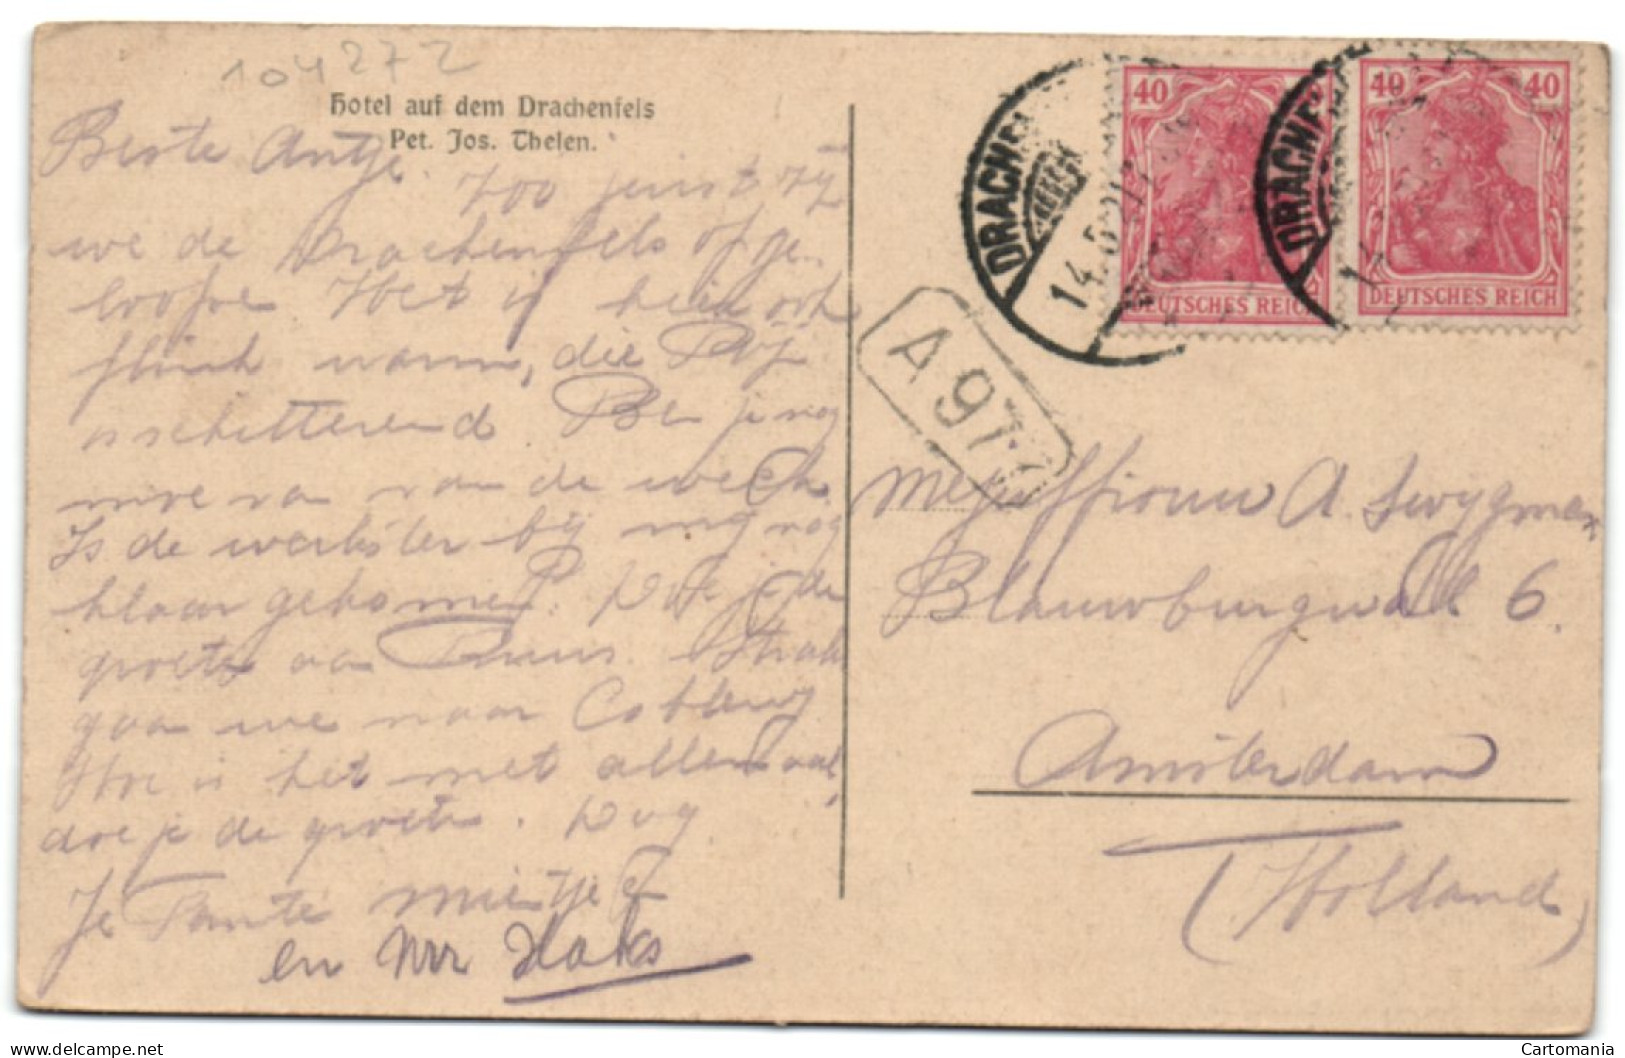 104272
Hotel auf dem Drachenfels
Pet. Jos. Thelen.
Beste Antje.
Zoo juist zijn
we de Drachenfels opge-
loope Het is hier ook
flink warm, die
is schitterend. Ben je nog
van de week.
Is de werkster bij mij nog
klaar gekomen. Doe je de
groete aan Straks
gaan we naar Coblenz
Hoe is het met allemaal,
doe je de groete. Dag
Je Tante Mientje
en Mr Haks
DRACHE
14.5.21
40
DEUTSCHES REICH
DRACHENF
40 40
DEUTSCHES REICH
A 97
Mejuffrouw A. Swygman
Blauwburgwall 6.
Amsterdam
(Holland)
Cartomania